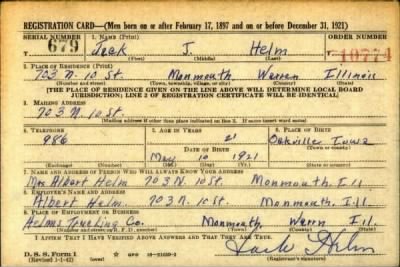 REGISTRATION CARD—(Men born on or after February 17, 1897 and on or before December 31, 1921)
SERIAL NUMBER 1. NAME (Print) ORDER NUMBER
679 Jack J. Helm 10774
(First) (Middle) (Last)
2. PLACE OF RESIDENCE (Print)
703 N. 10 St. Monmouth Warren Illinois
(Number and street) (Town, township, village, or city) (County) (State)
[THE PLACE OF RESIDENCE GIVEN ON THE LINE ABOVE WILL DETERMINE LOCAL BOARD
JURISDICTION; LINE 2 OF REGISTRATION CERTIFICATE WILL BE IDENTICAL]
3. MAILING ADDRESS
703 N. 10 St.
[Mailing address if other than place indicated on line 2. If same insert word same]
4. TELEPHONE 5. AGE IN YEARS 6. PLACE OF BIRTH
986 21 Oakville
DATE OF BIRTH
May 10 1921 Iowa
7. NAME AND ADDRESS OF PERSON WHO WILL ALWAYS KNOW YOUR ADDRESS
Mrs Albert Helm 703 N. 10 St. Monmouth Ill
8. EMPLOYER'S NAME AND ADDRESS
Albert Helm 703 N. 10 St. Monmouth. Ill
9. PLACE OF EMPLOYMENT OR BUSINESS
Helms Trucking Co. Monmouth Warrn Ill.
(Number and street or R. F. D. number) (Town) (County) (State)
I AFFIRM THAT I HAVE VERIFIED ABOVE ANSWERS AND THAT THEY ARE TRUE.
D. S. S. Form 1
(Revised 1-1-42) (over) GPO 16—21630-2 Jack Helm
(Registrant's signature)